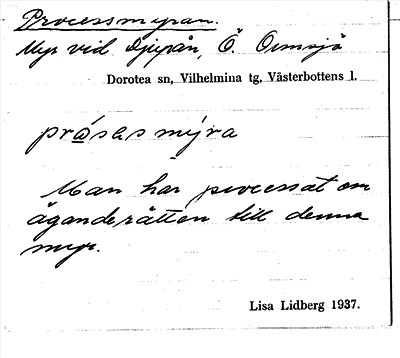 Processmyran.
Myr vid Djupån, Ö. Ormsjö
Dorotea sn, Vilhelmina tg, Västerbottens l.
pråsasmýra
Man har processat om
äganderätten till denna
myr.
Lisa Lidberg 1937.